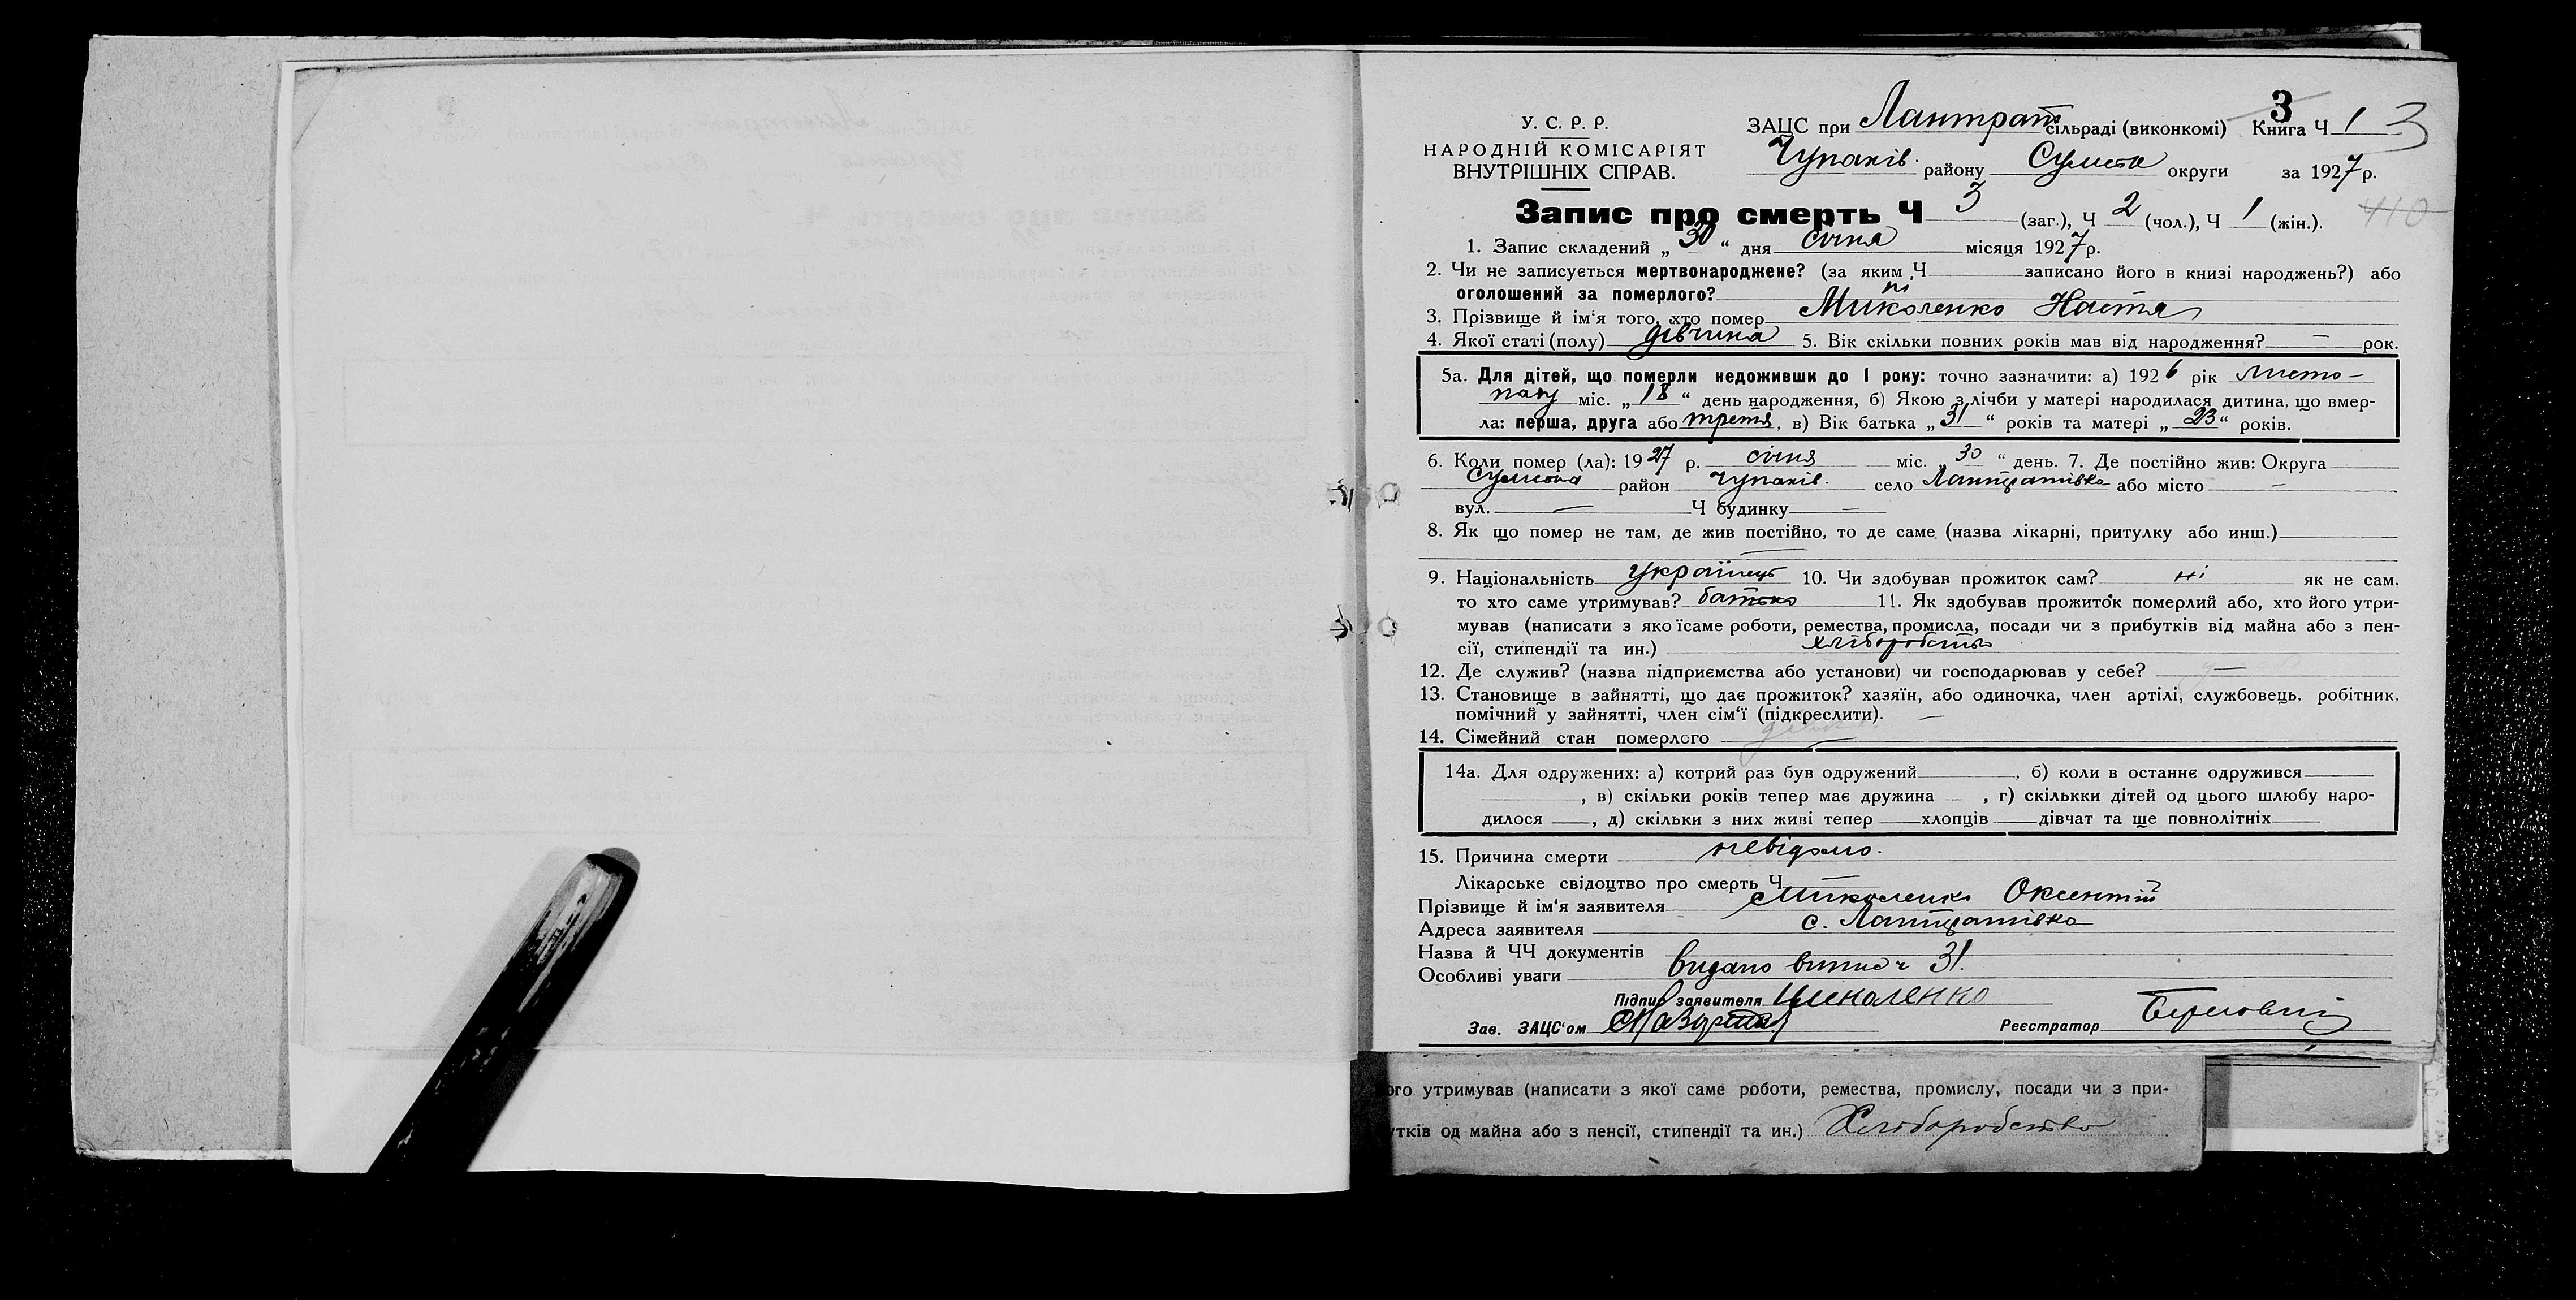 3
У. С. Р. Р.
НАРОДНІЙ КОМІСАРІЯТ
ВНУТРІШНІХ СПРАВ.
ЗАЦС при Лантрат сільраді (виконкомі) Книга Ч 1 3
Чупахів. району Сумська округи за 1927 р.
Запис про смерть Ч 3 (заг.), Ч 2 (чол.), Ч 1 (жін.). 410
1. Запис складений „ 30 “ дня січня місяця 1927 р.
2. Чи не записується мертвонароджене? (за яким Ч записано його в книзі народжень?) або
оголошений за померлого? ні
3. Прізвище й ім‘я того, хто помер Миколенко Настя
4. Якої статі (полу) дівчина 5. Вік скільки повних років мав від народження? — рок.
5а. Для дітей, що померли недоживши до 1 року: точно зазначити: а) 1926 рік листо-
паду міс. „ 18 “ день народження, б) Якою з лічби у матері народилася дитина, що вмер-
ла: перша, друга або третя, в) Вік батька „ 31 “ років та матері „ 23 “ років.
6. Коли помер (ла): 1927 р. січня міс. „ 30 “ день. 7. Де постійно жив: Округа
Сумська район Чупахів. село Лантратівка або місто —
вул. — Ч будинку —
8. Як що помер не там, де жив постійно, то де саме (назва лікарні, притулку або инш.)
—
9. Національність українець 10. Чи здобував прожиток сам? ні як не сам,
то хто саме утримував? батько 11. Як здобував прожиток померлий або, хто його утри-
мував (написати з якоїсаме роботи, ремества, промисла, посади чи з прибутків від майна або з пен-
сії, стипендії та ин.) хліборобство
12. Де служив? (назва підприємства або установи) чи господарював у себе? —
13. Становище в зайнятті, що дає прожиток? хазяїн, або одиночка, член артілі, службовець, робітник,
помічний у зайнятті, член сім‘ї (підкреслити). —
14. Сімейний стан померлого —
14а. Для одружених: а) котрий раз був одружений , б) коли в останнє одружився
, в) скільки років тепер має дружина — , г) скількки дітей од цього шлюбу наро-
дилося , д) скільки з них живі тепер хлопців дівчат та ще повнолітніх
15. Причина смерти невідомо.
Лікарське свідоцтво про смерть Ч —
Прізвище й ім‘я заявителя Миколенко Оксентій
Адреса заявителя с. Лантратівка
Назва й ЧЧ документів
Особливі уваги видано випис ч 31.
Підпис заявителя Миколенко
Зав. ЗАЦС‘ом Реєстратор Береговий
ого утримував (написати з якої саме роботи, ремества, промислу, посади чи з при-
утків од майна або з пенсії, стипендії та ин.) Хліборобство